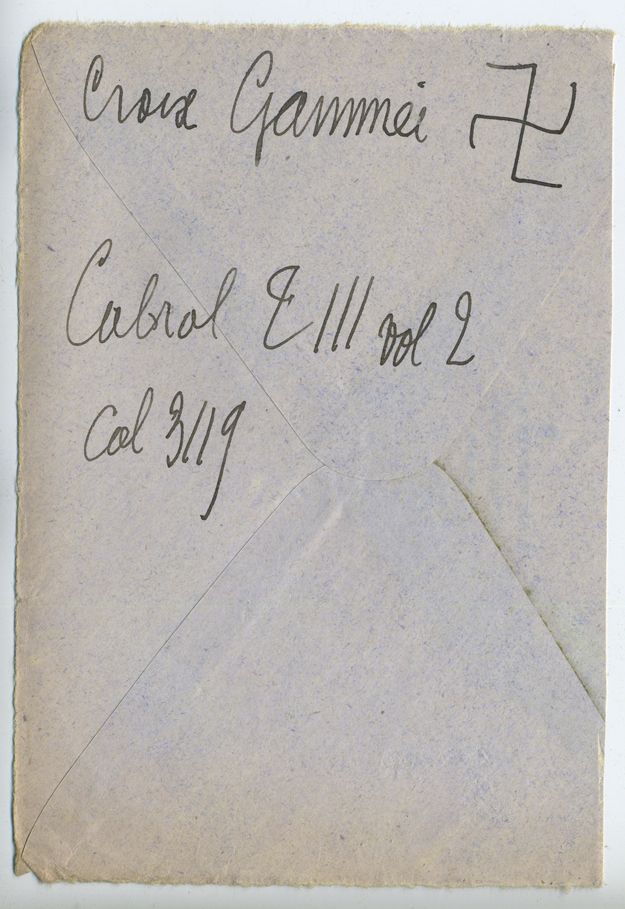 Croix Gammei
Cabrol T III vol 2
Col 3119